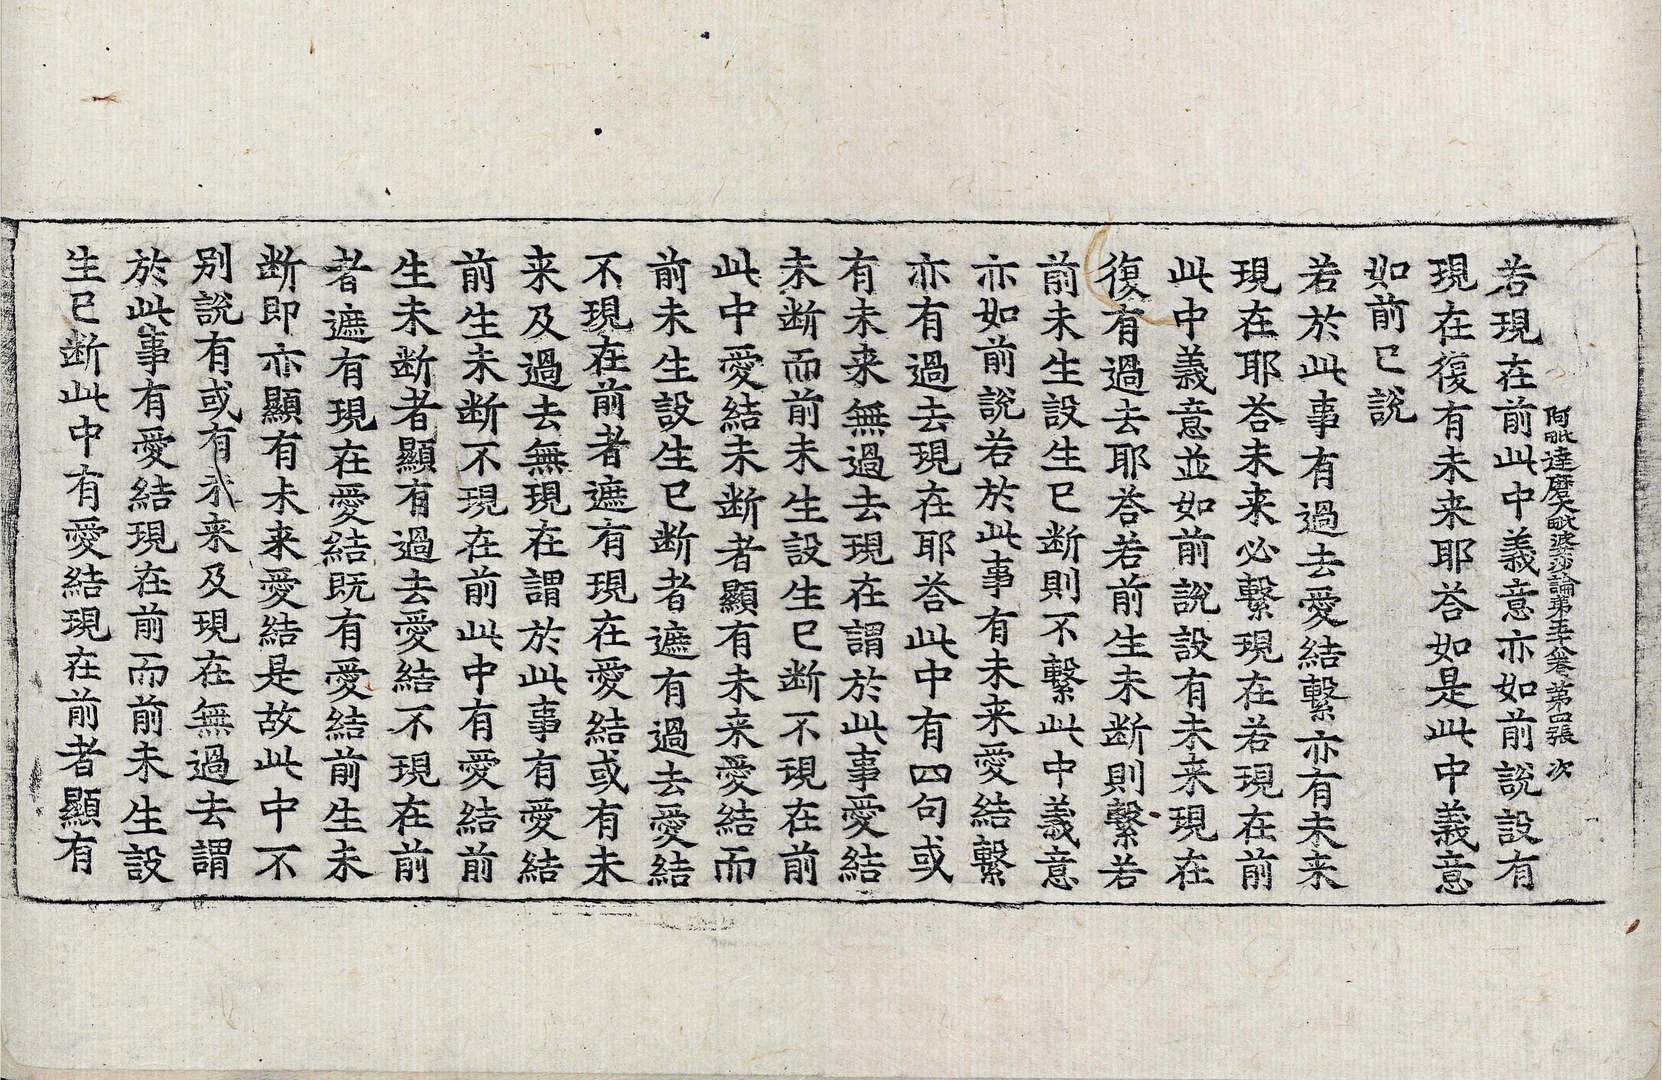 阿毗達磨大毗婆沙論第五十八卷 第四張 次
若現在前此中義意亦如前說設有
現在復有未来耶荅如是此中義意
如前已說
若於此事有過去愛結繫亦有未来
現在耶荅未来必繫現在若現在前
此中義意並如前說設有未来現在
復有過去耶荅若前生未断則繫若
前未生設生已断則不繫此中義意
亦如前說若於此事有未来愛結繫
亦有過去現在耶荅此中有四句或
有未来無過去現在謂於此事愛結
未断而前未生設生已断不現在前
此中愛結未断者顯有未来愛結而
前未生設生已断者遮有過去愛結
不現在前者遮有現在愛結或有未
来及過去無現在謂於此事有愛結
前生未断不現在前此中有愛結前
生未断者顯有過去愛結不現在前
者遮有現在愛結既有愛結前生未
断即亦顯有未来愛結是故此中不
别說有或有未来及現在無過去謂
於此事有愛結現在前而前未生設
生已断此中有愛結現在前者顯有